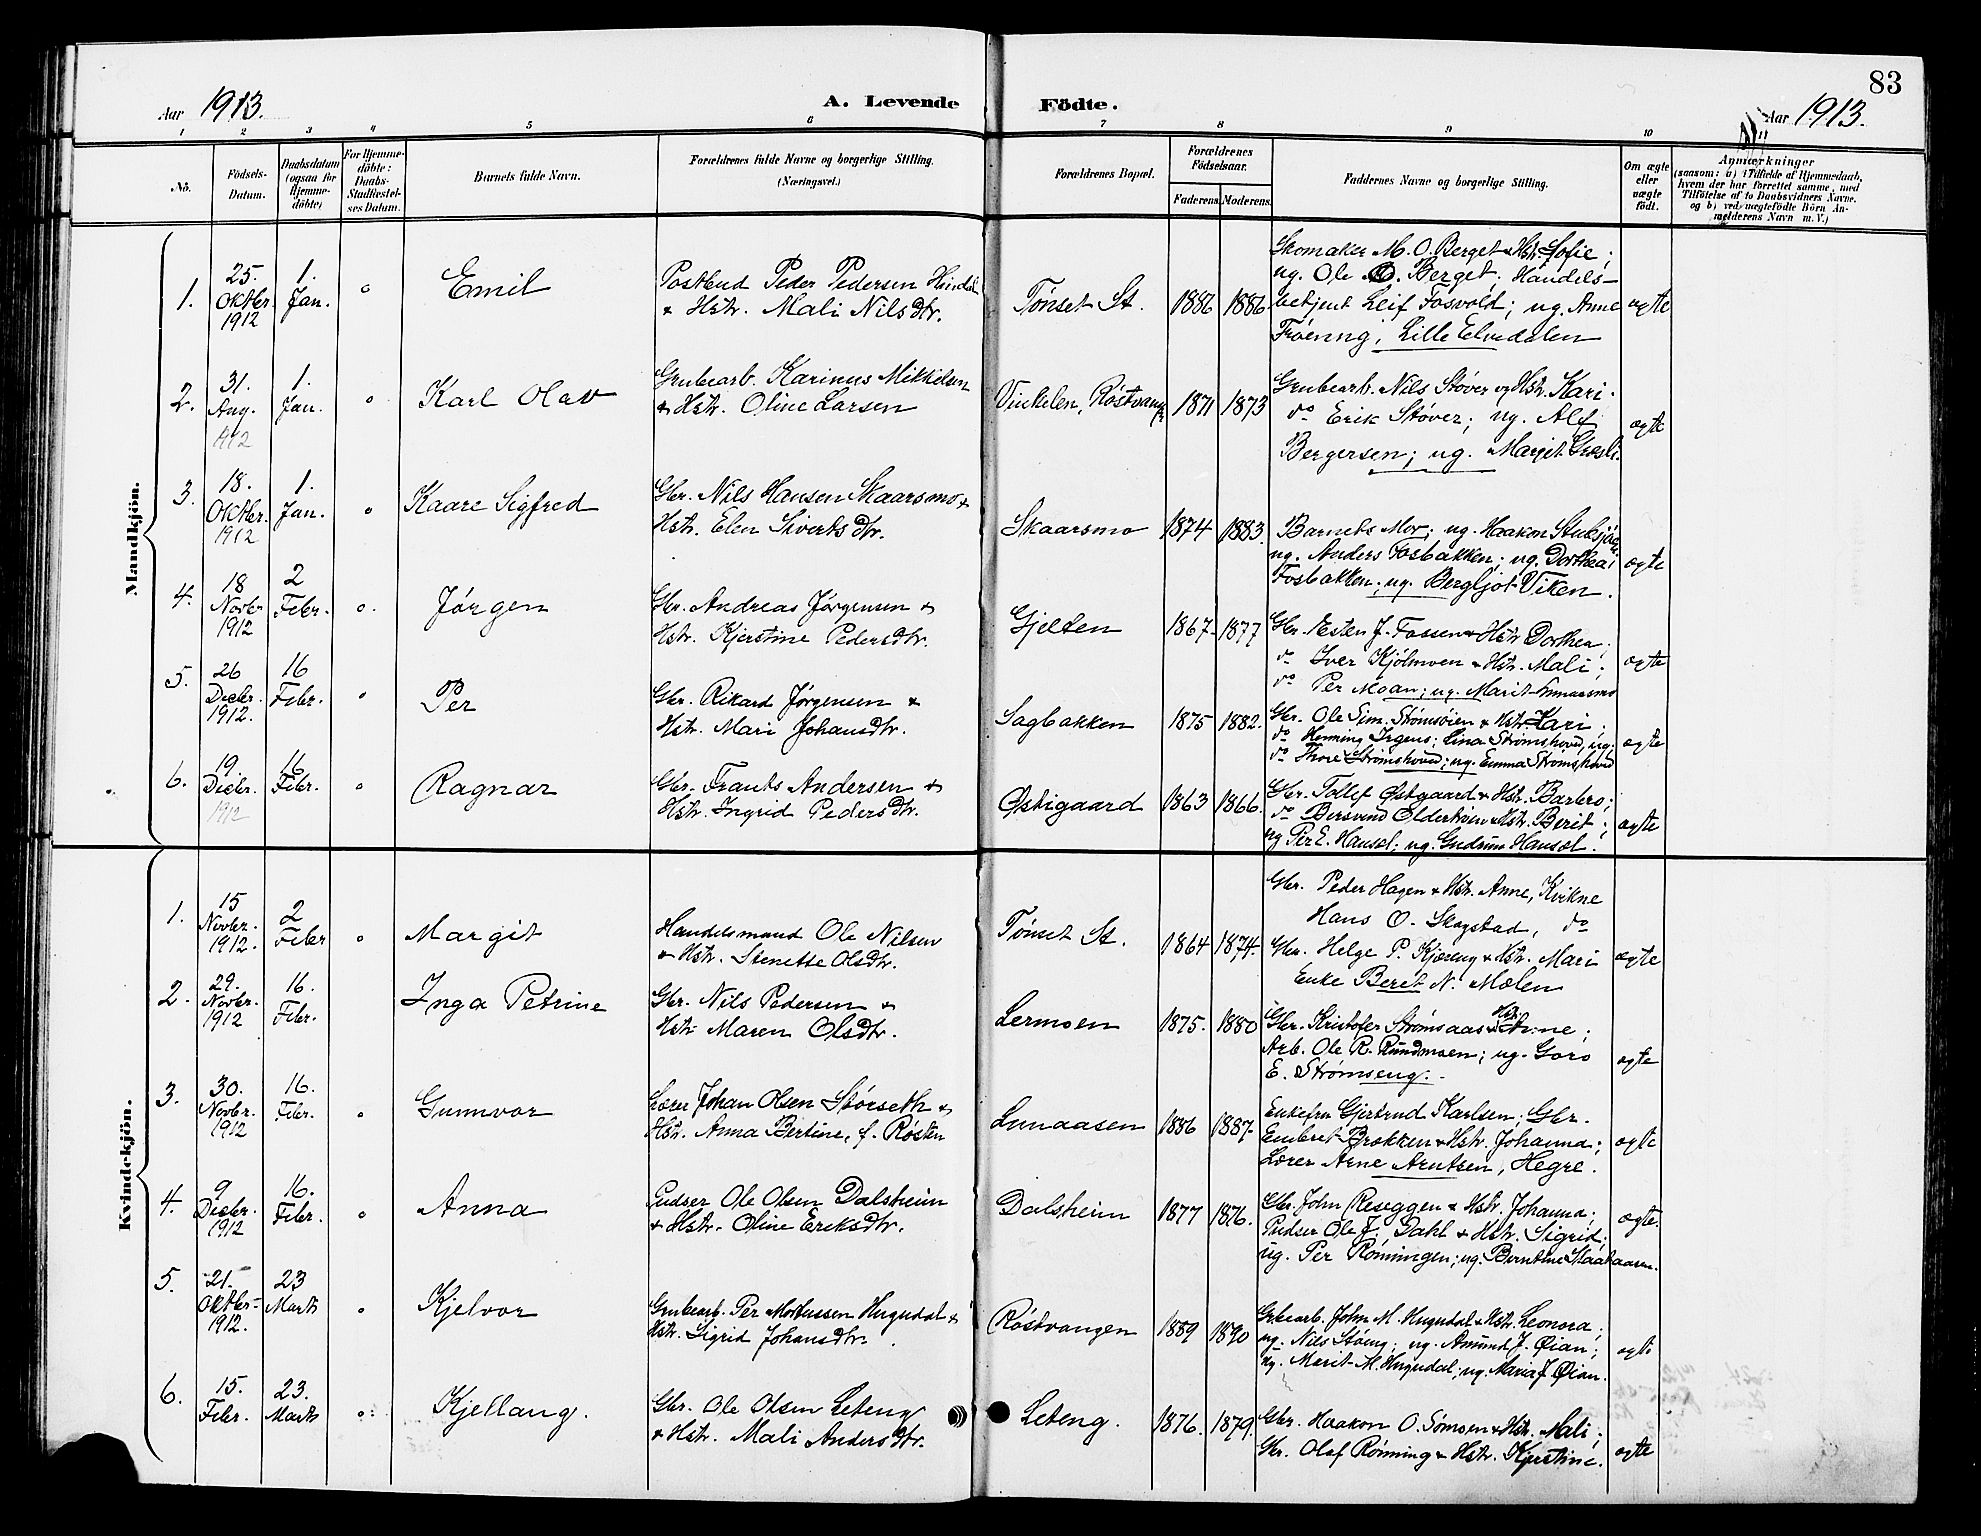 83
Aar 1913.
A. Levende Födte.
Aar 1913.
1 2 3 4 5 6 7 8 9 10 11
No.
Födsels-Datum.
Daabsdatum (ogsaa for Hjemme-döbte)
For Hjemme-döbte: Daabs-Stadfæstel-ses Datum.
Barnets fulde Navn.
Forældrenes fulde Navne og borgerlige Stilling. (Næringsvei.)
Forældrenes Bopæl.
Forældrenes Födselsaar.
Faderens. Moderens.
Faddernes Navne og borgerlige Stilling.
Om ægte eller uægte født.
Anmærkninger
(saasom: a) i Tilfælde af Hjemmedaab,
hvem der har forrettet samme, med
Tilföielse af to Daabsvidners Navne,
og b) ved uægtefödte Börn An-
melderens Navn m. V.)
Mandkjön.
1.
25. Oktbr. 1912
1. Jan.
Emil
Postbud Peder Pedersen
& Hstr. Mali Nilsdtr.
Tønset St.
1886 1886
Skomaker M. O. Berget & Hstr. Sofie;
ug. Ole O. Berget; Handels-
betjent Leif Fosvold; ug. Anne
Trøenng, Lille Elvedalen
ægte
2.
31. Aug. 1912
1. Jan.
Karl Olav
Grubearb. Karinus Mikkelsen
& Hstr. Oline Larsen
Vinkelen, Røstvang
1871 1873
Grubearb. Nils Støver og Hstr. Kari.
do Erik Støver; ug. Alf
Bergersen; ug. Margit
ægte
3.
18. Oktbr. 1912
1. Jan.
Kaare Sigfred
Gbr. Nils Hansen Skaarsmo &
Hstr. Elen Sivertsdtr.
Skaarsmo
1874 1883.
Barnets Mor; ug. Haakon
ug. Anders Fosbakken; ug. Dorthea
Fosbakken; ug. Bergljot Viken.
ægte
4.
18 Novbr 1912
2 Febr.
Jørgen
Gbr. Andreas Jørgensen &
Hstr. Kjerstine Pedersdtr.
Gjelten
1867. 1877
Gbr. Esten J. Fossen & Hstr Dorthea;
do Iver Kjølmoen & Hstr. Mali;
do Per Moan; ug. Marit
ægte
5.
26 Decbr. 1912.
16 Febr.
Per
Gbr. Rikard Jørgensen &
Hstr. Mari Johansdtr.
Sagbakken
1875 1882.
Gbr. Ole Sim. Strømsøien & Hstr Kari;
do Henning Irgens; Lina Strømshoved, ug.
do Thore Strømshoved; ug. Emma Strømshoved
ægte
6.
19. Decbr. 1912
16 Febr.
Ragnar
Gbr. Frants Andersen &
Hstr. Ingrid Pedersdtr.
Østigaard
1863 1866.
Gbr. Tollef Østgaard & Hstr. Barbro;
do Bersvend Oldertrøen & Hstr. Berit;
ug Per E. Hansel; ug. Gudrun Hansæl.
ægte
Kvindekjön.
1.
15 Novbr. 1912.
2 Febr
Margit
Handelsmand Ole Nilsen
& Hstr. Stenette Olsdtr.
Tønset St.
1864 1874.
Gbr. Peder Hagen & Hstr. Anne, Kvikne
Hans O. Skogstad, do
Gbr. Helge P. Kjæreng & Hstr. Mari
Enke Beret N. Mælen
ægte
2.
29. Novbr. 1912
16. Febr.
Inga Petrine
Gbr. Nils Pedersen &
Hstr. Maren Olsdtr.
Lermoen
1875. 1880
Gbr. Kristofer Strømsaas & Hstr. Anne;
Arb. Ole R. Rundmoen; ug. Goro
E. Strømseng.
ægte
3.
30. Novbr. 1912
16. Febr.
Gunnvor
Lærer Johan Olsen Størseth &
Hstr. Anna Bertine, f. Røsten
Lunaasen
1886 1887.
Enkefru Gjertrud Karlsen; Gbr.
Embret Brækken & Hstr. Johanna;
Lærer Arne Arntsen, Hegre.
ægte
4.
9 Decbr. 1912
16. Febr.
Anna
Pudser Ole Olsen Dalsheim
& Hstr. Oline Eriksdtr.
Dalsheim
1877 1876.
Gbr. John Reseggen & Hstr. Johanna;
Pudser Ole J. Dahl & Hstr. Sigrid;
ug. Per Rønningen; ug. Berntine
ægte.
5.
21. Oktbr. 1912.
23 Marts
Kjelvor
Grubearb. Per Mortussen Hugudal &
Hstr. Sigrid Johansdtr.
Røstvangen
1889 1890
Grbearb. John M. Hugudal & Hstr. Leonora;
ug. Nils Støeng; ug. Amund J. Øian;
ug. Marit M. Hugudal; ug. Maria J Øian.
ægte
6.
15. Febr.
23. Marts
Kjellaug.
Gbr. Ole Olsen Leteng
& Hstr. Mali Andersdtr.
Leteng.
1876. 1879.
Gbr. Haakon O. Tomoen & Hstr. Mali;
Gbr. Olaf Rønning & Hstr. Kjerstine.
ægte